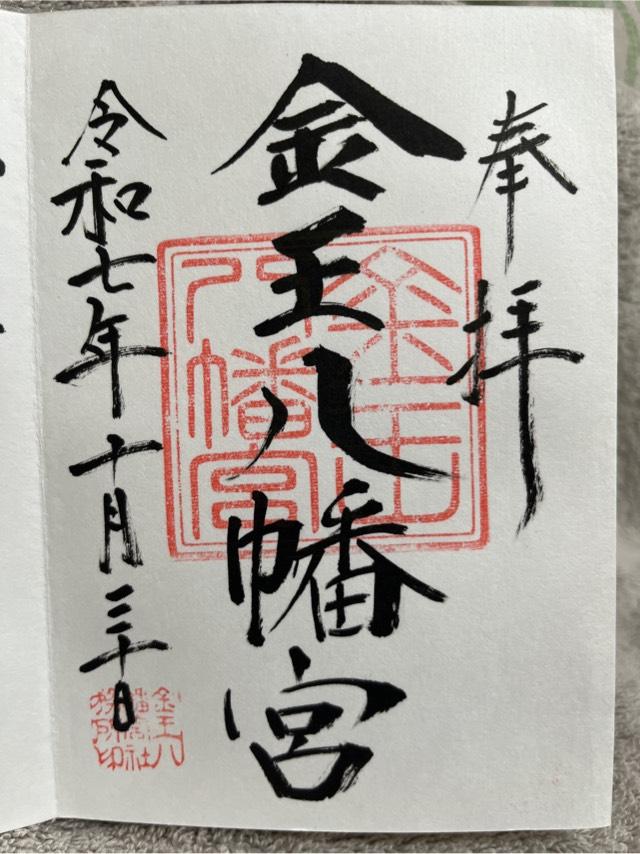 奉拝
金王八幡宮
令和七年十月三十日
金王八幡宮
金王八幡宮社務所印